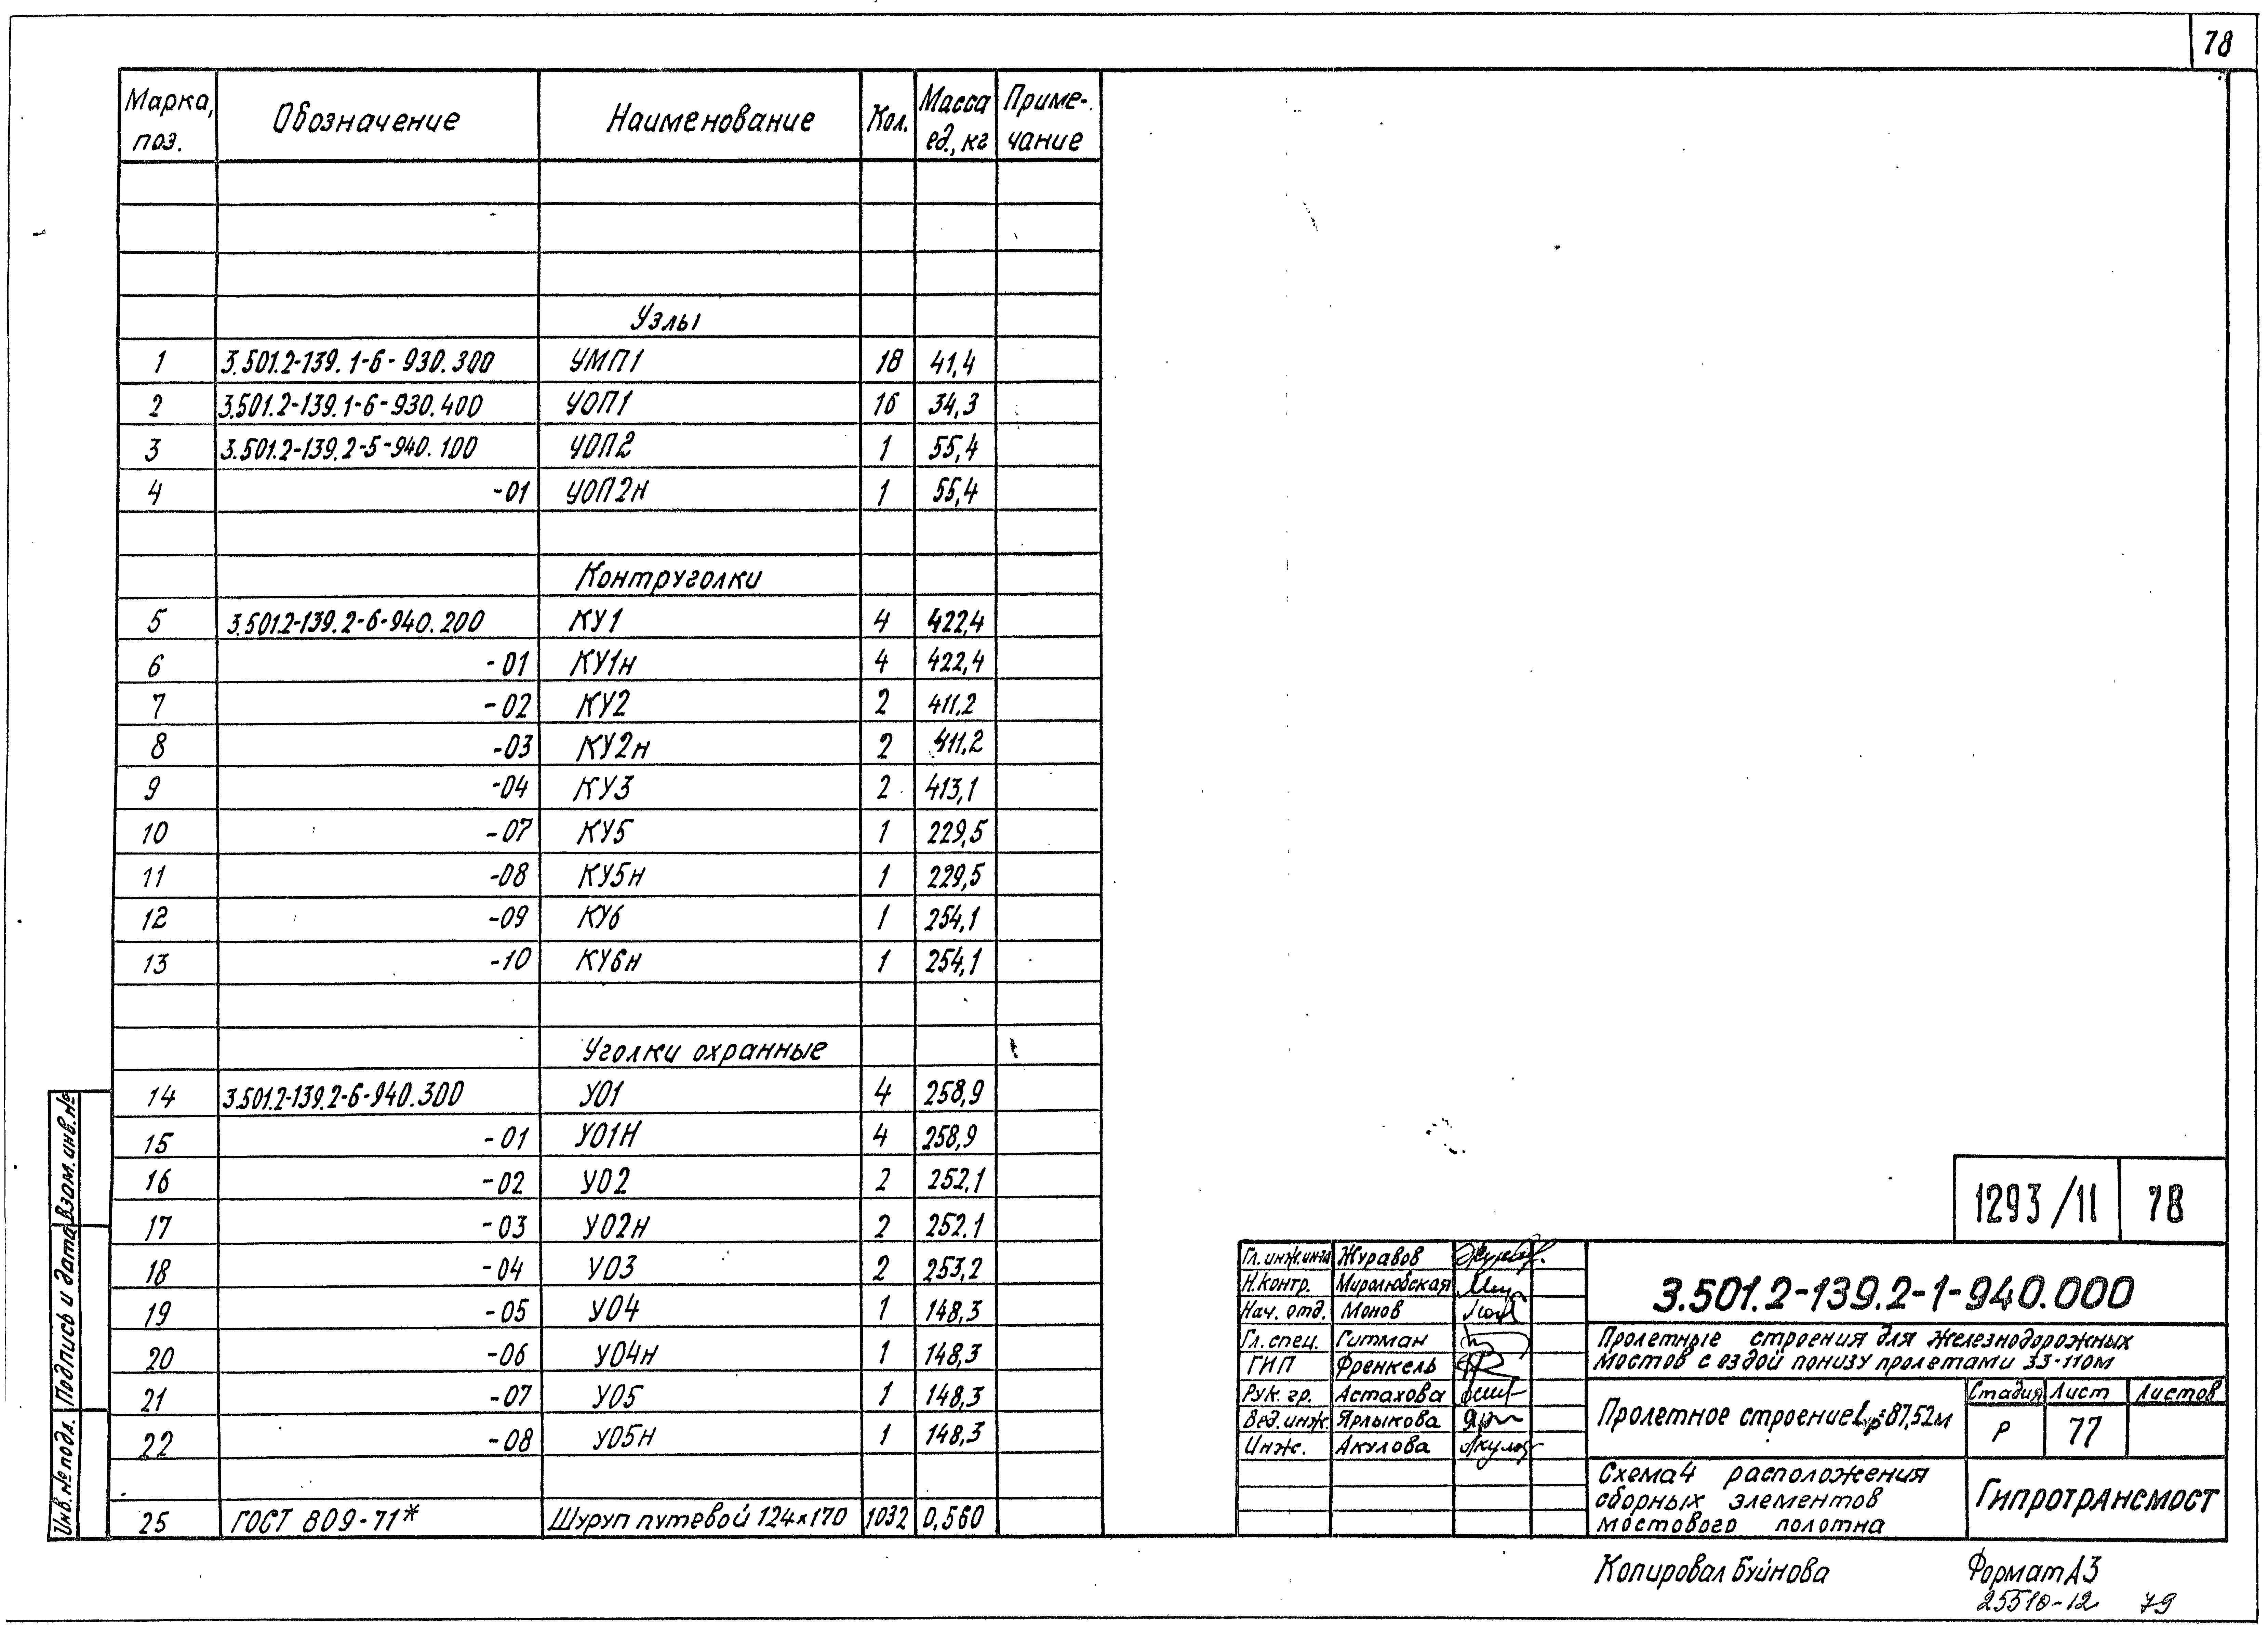 78
Марка, поз. Обозначение Наименование Кол. Масса ед., кг Приме-чание
Узлы
1 3.501.2-139.1-6-930.300 УМП1 18 41,4
2 3.501.2-139.1-6-930.400 УОП1 16 34,3
3 3.501.2-139.2-5-940.100 УОП2 1 55,4
4 -01 УОП2н 1 55,4
Контруголки
5 3.501.2-139.2-6-940.200 КУ1 4 422,4
6 -01 КУ1н 4 422,4
7 -02 КУ2 2 411,2
8 -03 КУ2н 2 411,2
9 -04 КУ3 2 413,1
10 -07 КУ5 1 229,5
11 -08 КУ5н 1 229,5
12 -09 КУ6 1 254,1
13 -10 КУ6н 1 254,1
Уголки охранные
14 3.501.2-139.2-6-940.300 УО1 4 258,9
15 -01 УО1Н 4 258,9
16 -02 УО2 2 252,1
17 -03 УО2н 2 252,1
18 -04 УО3 2 253,2
19 -05 УО4 1 148,3
20 -06 УО4н 1 148,3
21 -07 УО5 1 148,3
22 -08 УО5н 1 148,3
25 ГОСТ 809-71* Шуруп путевой 124×170 1032 0,560
Инв. № подл. Подпись и дата Взам. инв. №
1293/11 78
Гл. инж. инта Журавов
Н.контр. Миролюбская
Нач. отд. Монов
Гл. спец. Гитман
ГИП Френкель
Рук. гр. Астахова
Вед. инж. Ярлыкова
Инж. Акулова
3.501.2-139.2-1-940.000
Пролетные строения для железнодорожных
мостов с ездой понизу пролетами 33-110м
Пролетное строение Lр=87,52м
Стадия Лист Листов
Р 77
Схема 4 расположения
сборных элементов
мостового полотна
Гипротрансмост
Копировал Буйнова Формат А3
25510-12 79